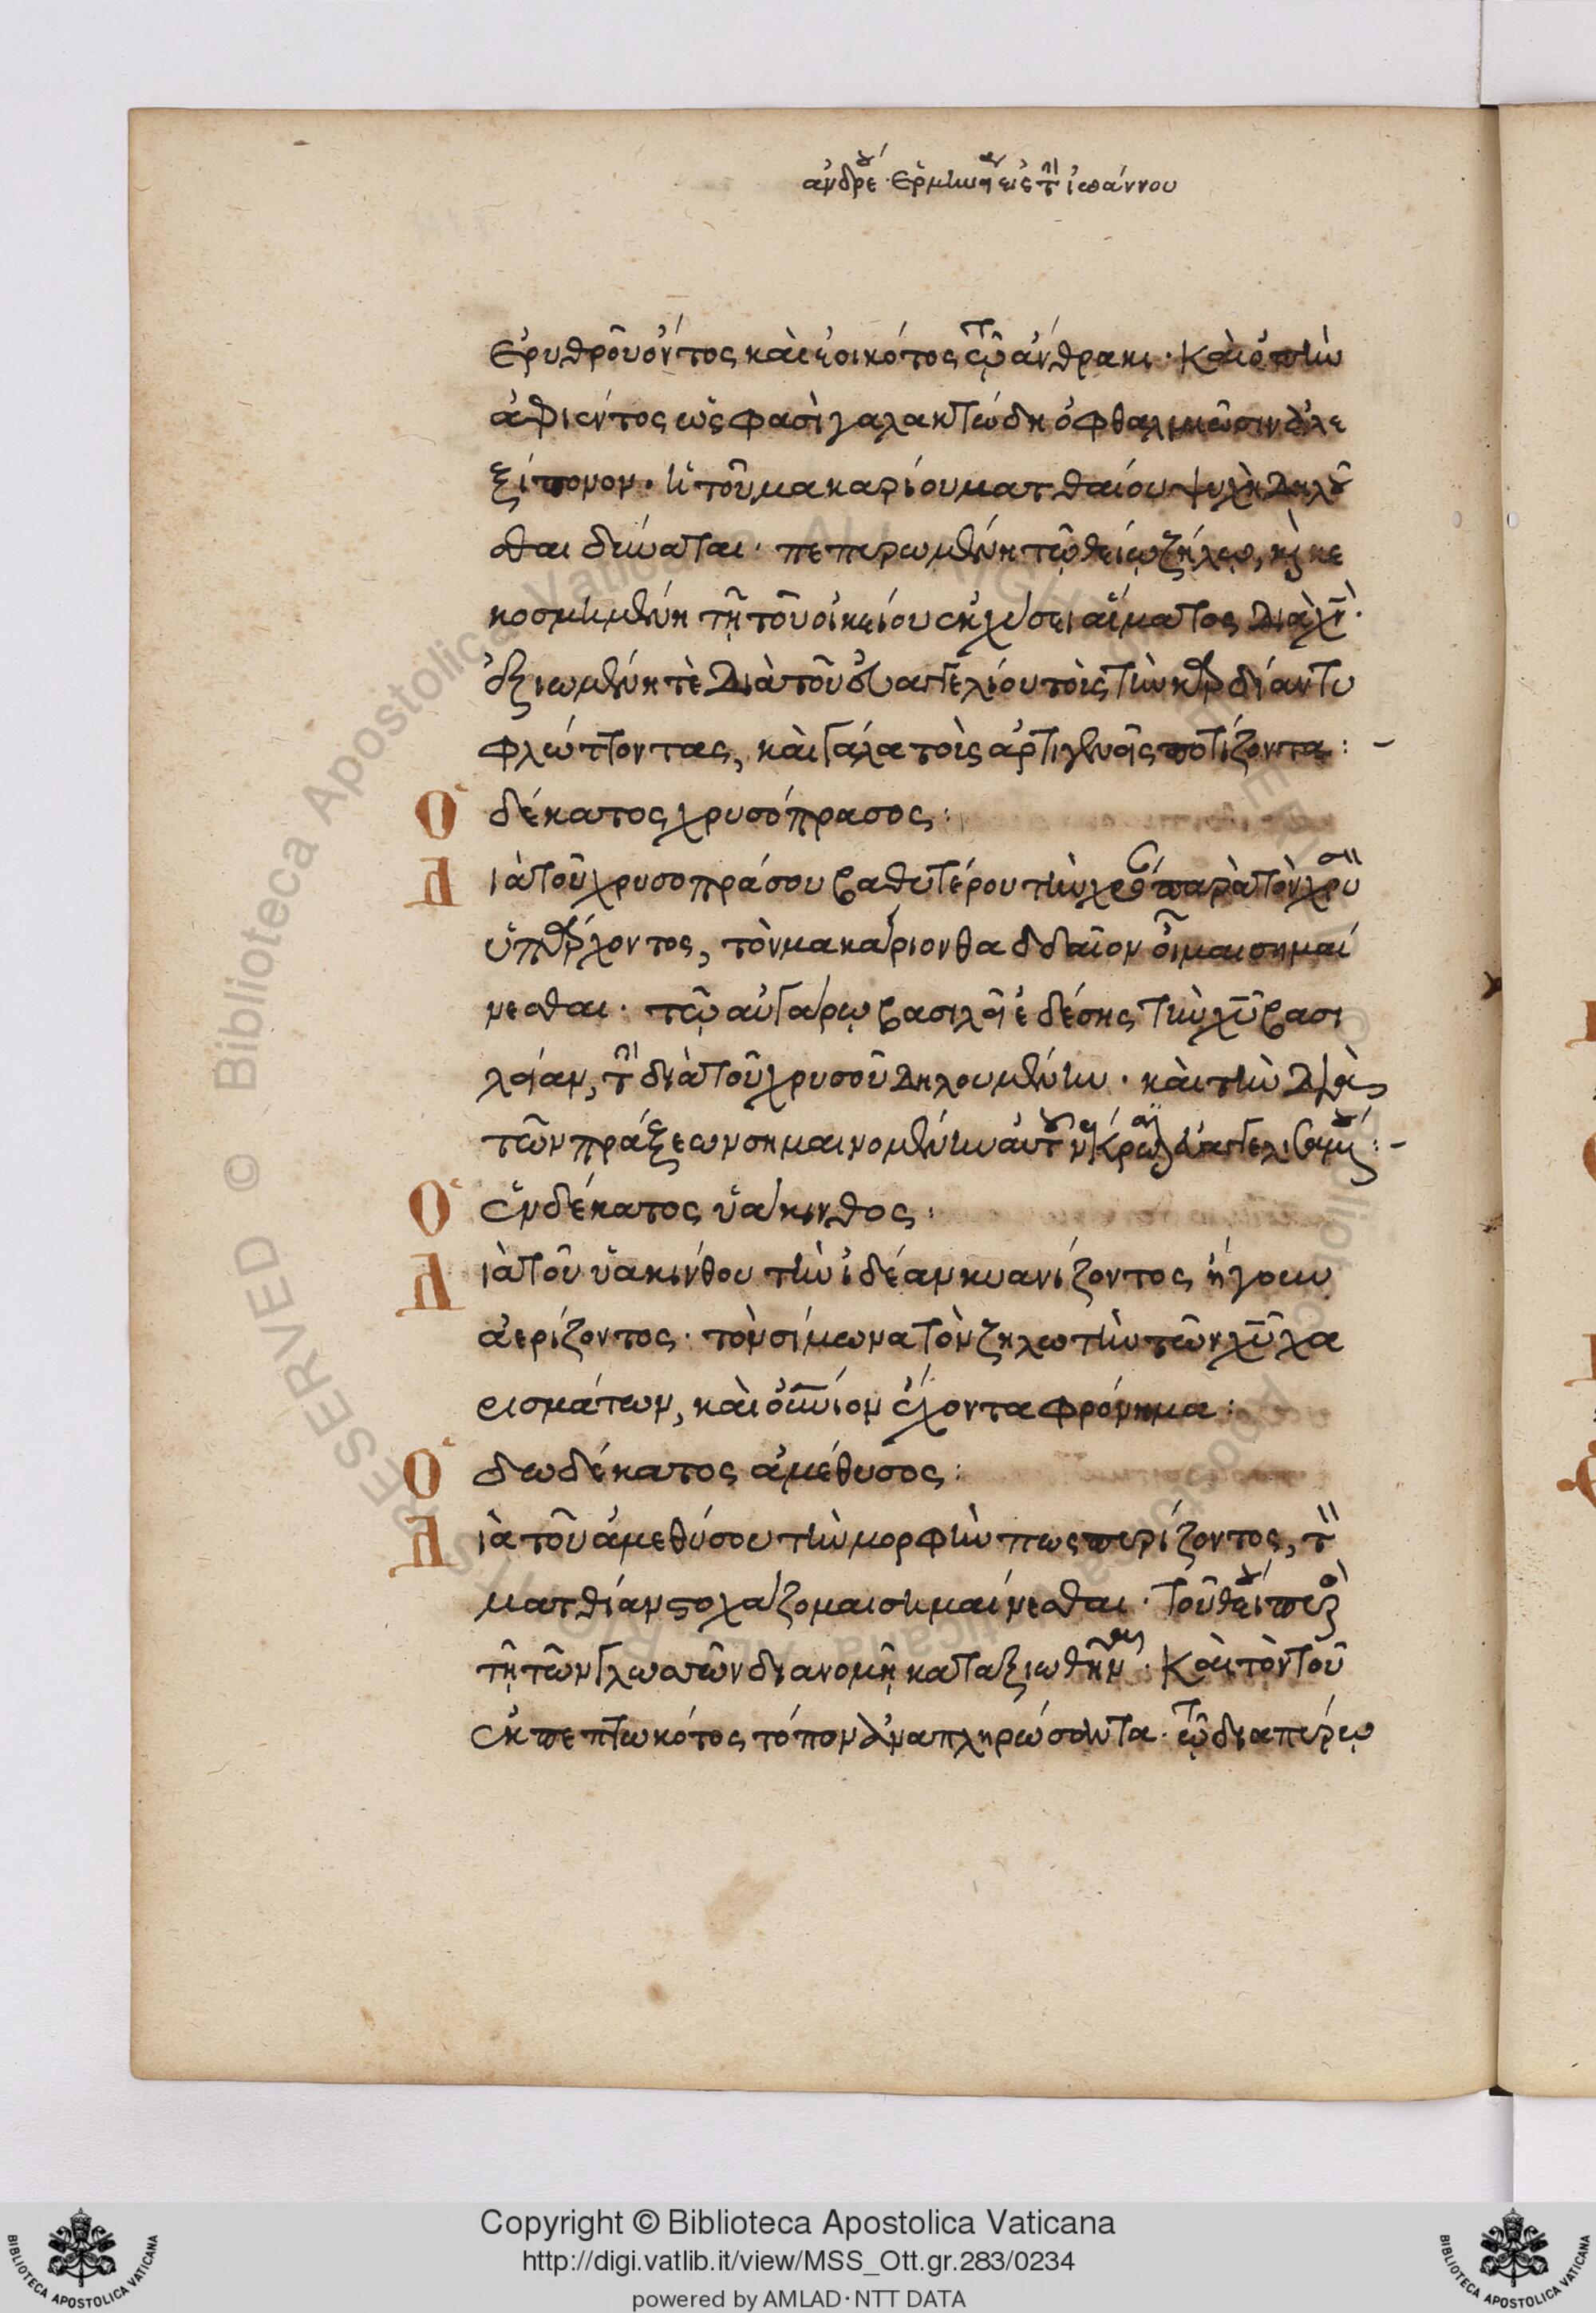 ἀνδρέου ἑρμηνεία εἰς τὴν ἰωάννου
ἐρυθροῦ ὄντος καὶ ἐοικότος τῷ ἄνθρακι· καὶ ὀπὴν
ἀφιέντος ὥς φασὶ γαλακτώδη ὀφθαλμιῶσιν ἀλε
ξίπονον· ἡ τοῦ μακαρίου ματθαίου ψυχὴ δηλοῦ
σθαι δύναται· πεπυρωμένη τῷ θείῳ ζήλῳ, καὶ κε
κοσμημένη τῇ τοῦ οἰκείου ἐκχύσει αἵματος διὰ χν·
ἀξιωμένη τὲ διὰ τοῦ εὐαγγελίου τοῖς τὴν καρδίαν τυ
φλώττοντας, καὶ γάλα τοῖς ἀρτιγενέσι ποτίζοντα:-
Ὁ δέκατος χρυσόπρασος:
Διὰ τοῦ χρυσοπράσου βαθυτέρου τὴν χρόαν παρὰ τὸν χρυσὸν
ὑπάρχοντος, τὸν μακάριον θαδδαῖον οἶμαι σημαί
νεσθαι· τῷ αὐγάρῳ βασιλεῖ ἐδέσης τὴν χυ βασι
λείαν, τὴν διὰ τοῦ χρυσοῦ δηλουμένην· καὶ τὴν διὰ
τῶν πράξεων σημαινομένην αὐτοῦ νέκρωσιν εὐαγγελισαμένου:-
Ὁ ἑνδέκατος ὑάκινθος:
Διὰ τοῦ ὑακίνθου τὴν ἰδέαν κυανίζοντος ἤγουν
ἀερίζοντος· τὸν σίμωνα τὸν ζηλωτὴν τῶν χυ χα
ρισμάτων, καὶ οὐνιον ἔχοντα φρόνημα:
Ὁ δωδέκατος ἀμέθυσος:
Διὰ τοῦ ἀμεθύσου τὴν μορφὴν πως πυρίζοντος, τὸν
ματθίαν στοχάζομαι σημαίνεσθαι· τοῦ θείου πυρὸς
τῇ τῶν γλωσσῶν διανομῇ καταξιωθῆναι· καὶ τὸν τοῦ
ἐκπεπτωκότος τόπον ἀναπληρώσαντα· τῷ διαπύρῳ
Copyright © Biblioteca Apostolica Vaticana
http://digi.vatlib.it/view/MSS_Ott.gr.283/0234
powered by AMLAD·NTT DATA